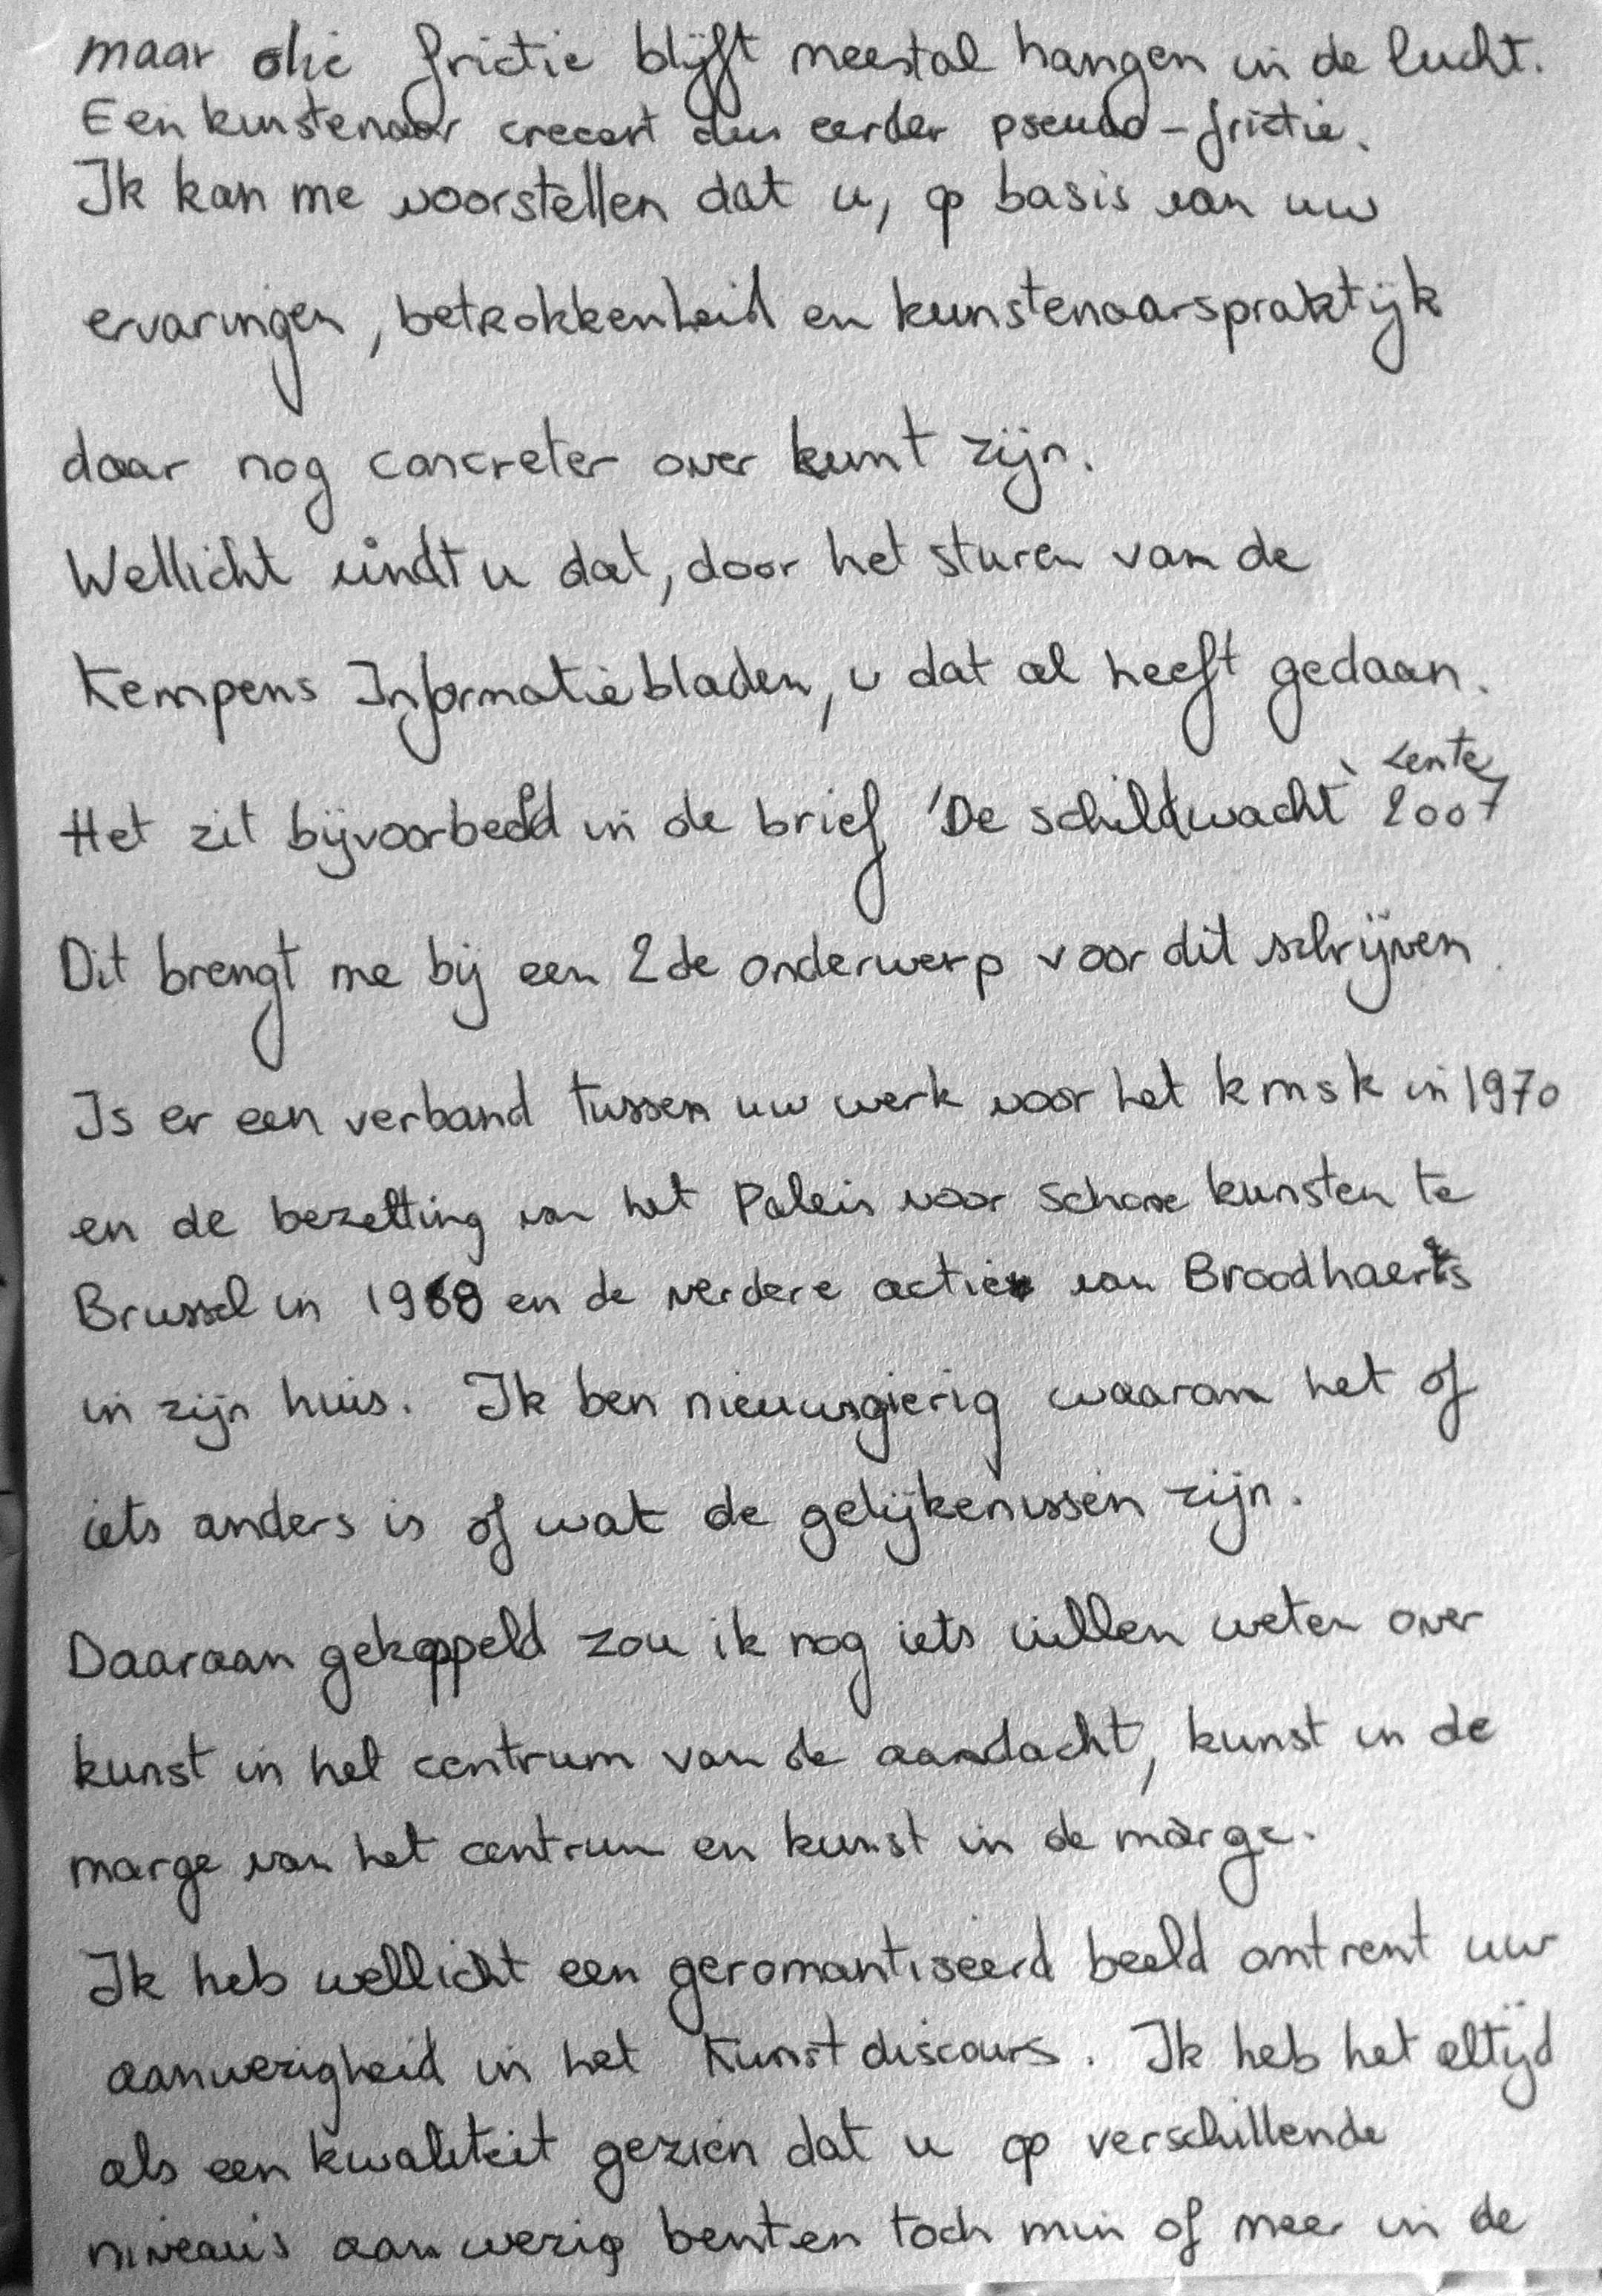 maar die frictie blijft meestal hangen in de lucht.
Een kunstenaar creëert dus eerder pseudo-frictie.
Ik kan me voorstellen dat u, op basis van uw
ervaringen, betrokkenheid en kunstenaarspraktijk
daar nog concreter over kunt zijn.
Wellicht vindt u dat, door het sturen van de
Kempens Informatiebladen, u dat al heeft gedaan.
Lente
Het zit bijvoorbeeld in de brief 'De schildwacht' 2007
Dit brengt me bij een 2de onderwerp voor dit schrijven.
Is er een verband tussen uw werk voor het kmsk in 1970
en de bezetting van het Paleis voor Schone kunsten te
Brussel in 1968 en de verdere acties van Broodhaerts
in zijn huis. Ik ben nieuwsgierig waarom het of
iets anders is of wat de gelijkenissen zijn.
Daaraan gekoppeld zou ik nog iets willen weten over
kunst in het centrum van de aandacht, kunst in de
marge van het centrum en kunst in de marge.
Ik heb wellicht een geromantiseerd beeld omtrent uw
aanwezigheid in het Kunstdiscours. Ik heb het altijd
als een kwaliteit gezien dat u op verschillende
niveau's aanwezig bent en toch min of meer in de